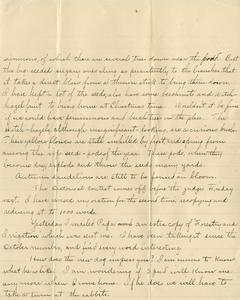 persimmons, of which there are several trees down near the pool. But
the big seeded sugary ones cling so persistently to the branches that
it takes a direct blow from a thrown stick to bring them down.
I have kept a lot of the seeds, also have some beechnuts and witch-
hazel fruit to bring home at Christmas time. Wouldn't it be fine
if we could have persimmons and beech trees on the place. The
witch-hazel, although insignificant-looking, are a curious bush.
These yellow flowers are still unwilted by frost and spring from
among the ripe seed-pods of the year. These pods, when they
become dry explode and throw the seeds many yards.
Autumn dandelions are still to be found in bloom.
The oratorical contest comes off before the judges Friday
next. I have wrote my oration for the second time, recopying and
reducing it to 1000 words.
Yesterday I mailed Papa a sample copy of Forestry and
Irrigation which was sent me. I have been taking it since the
October number, and find every word interesting.
How does the new dog impress you? I am anxious to know
what he is like. I am wondering if Spud will know me
any more when I come home. If he does we will have to
take a turn at the rabbits.